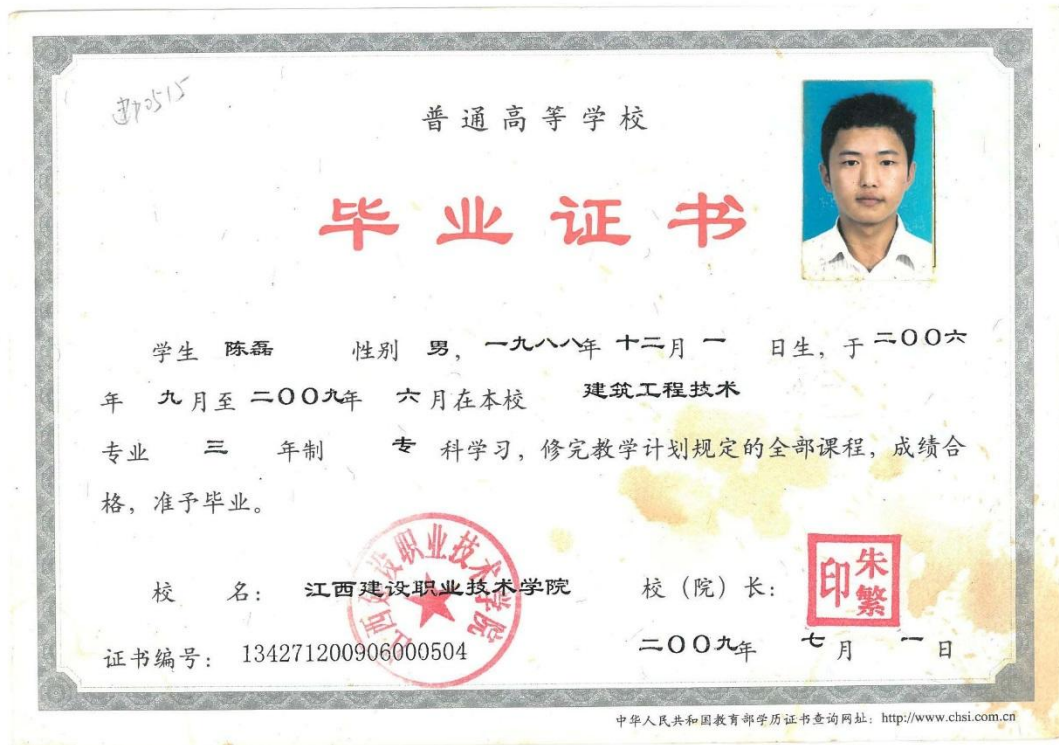 普通高等学校
毕业证书
学生 陈磊 性别 男，一九八八年 十二月 一 日生，于 二〇〇六
年 九月至 二〇〇九年 六月在本校 建筑工程技术
专业 三 年制 专 科学习，修完教学计划规定的全部课程，成绩合
格，准予毕业。
校 名： 江西建设职业技术学院 校（院）长：
朱繁印
江西建设职业技术学院
证书编号： 134271200906000504 二〇〇九年 七月 一 日
中华人民共和国教育部学历证书查询网址：http://www.chsi.com.cn